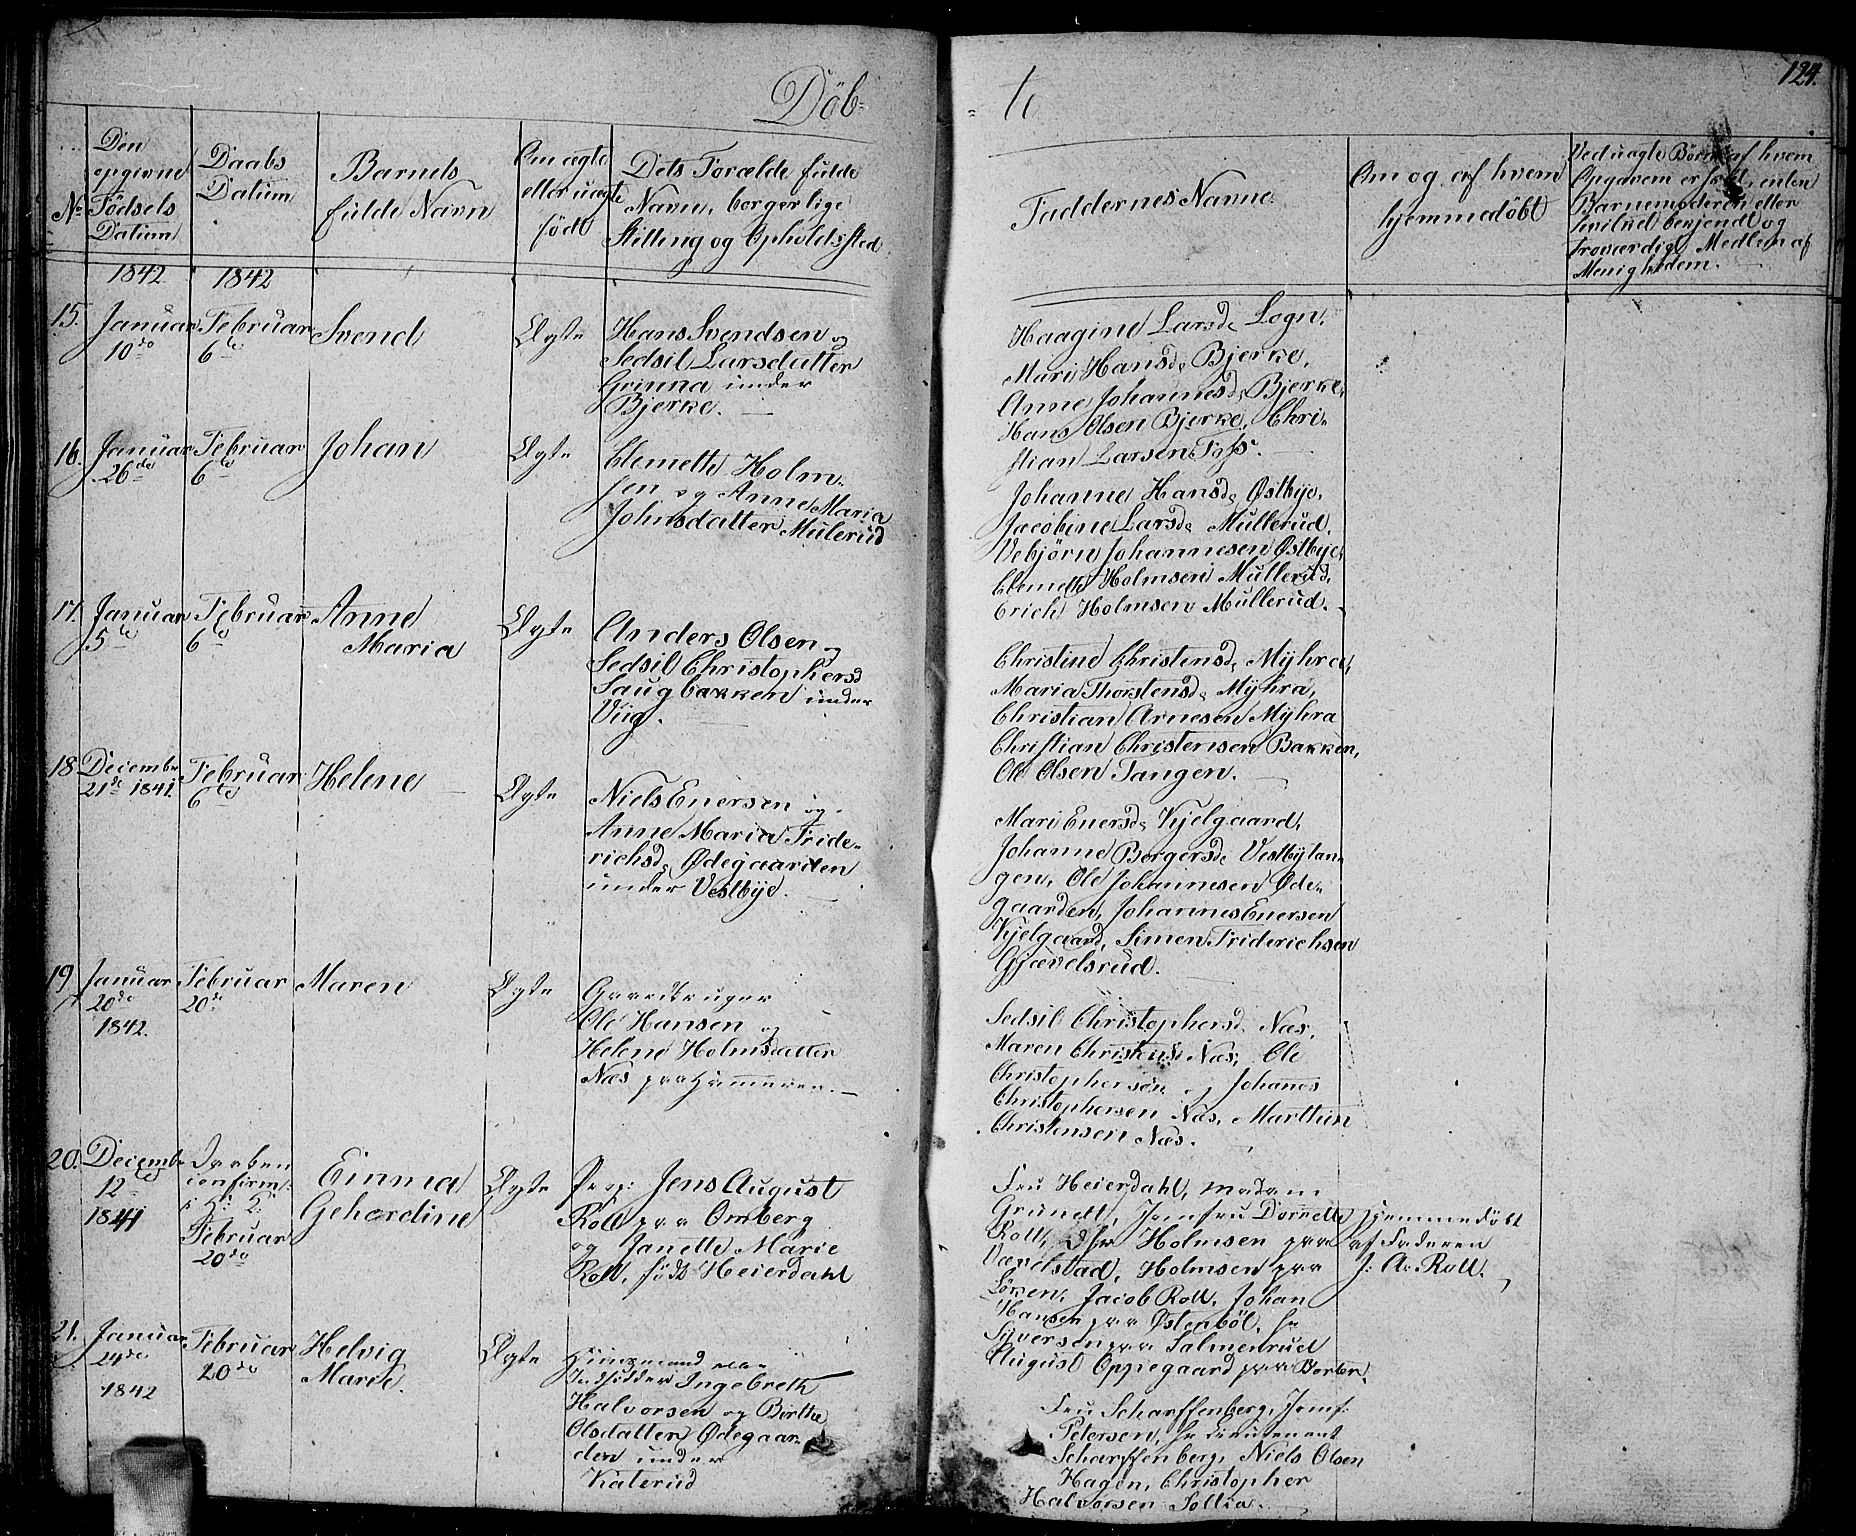 Døb-
- te
124.
No
Den opgivne Fødsels Datum
Daabs Datum
Barnets fulde Navn
Om ægte eller uægte født
Dets Forældre fulde Navn, borgerlige Stilling og Opholdssted
Faddernes Navne.
Om og af hvem hjemmedøbt
Ved uægte Børn af hvem
Opgaven er skeet, enten
Barnemoderen eller
bekjendt og
troværdigt Medlem af
Menigheden.
1842
1842
15.
Januar
10de
Februar
6te
Svend
Ægte
Hans Svendsen og
Sedsil Larsdatter
Grinna under
Bjerke.
Haagine Larsd. Logn,
Mari Hansd. Bjerke,
Anne Johannesd. Bjerke,
Hans Olsen Bjerke, Chri-
stian Larsen Foss.
16.
Januar
26de
Februar
6te
Johan
Ægte
Clemett Holm-
sen og Anne Maria
Johnsdatter Mülerud
Johanne Hansd. Østbye,
Jacobine Larsd. Mullerud,
Vebjörn Johannesen Østbye,
Clemett Holmsen Mullerud,
Erich Holmsen Mullerud.
17.
Januar
5te
Februar
6te
Anne
Maria
Ægte
Anders Olsen og
Sedsil Christophersd
Saugbakken under
Viig.
Christine Christensd. Mÿhra,
Maria Thorstensd. Mÿhra,
Christian Arnesen Mÿhra
Christian Christensen Bakken,
Ole Olsen Tangen.
18
Decembr
21de 1841.
Februar
6te
Helene
Ægte
Niels Enersen og
Anne Maria Fride-
richsd. Ødegaarden
under Vestbye.
Mari Enersd. Kjelgaard,
Johanne Borgersd. Vestbytan-
gen, Ole Johannesen Øde-
gaarden, Johannes Enersen
Kjelgaard, Simen Friderichsen
Gjævelsrud.
19
Januar
20de
1842.
Februar
20de
Maren
Ægte
Gaardbruger
Ole Hansen og
Helene Holmsdatter
Næs paa Hammeren.
Sedsil Christophersd. Næs,
Maren Christensd. Næs, Ole
Christophersøn og Johanes
Christophersen Næs, Marthin
Christensen Næs.
20.
Decemb.
12te
1841
Daaben
confirm:
i H: K:
Februar
20de
Emma
Gehardine
Ægte
Prop: Jens August
Roll paa Omberg
og Janette Marie
Roll, født Heierdahl
Fru Heierdahl, Madam
Grundt, Jomfru Dorrette
Roll, Hr Holmsen paa
Vævelstad, Holmsen paa
Löken, Jacob Roll, Johan
Hansen paa Østenböl, Hr
Syversen paa Salmonrud
August Oppegaard paa Berber.
Hjemmedöbt
af Faderen
J. A. Roll.
21.
Januar
24de
1842
Februar
20de
Helvig
Marie.
Ægte
Huusmand
Ingebreth
Halvorsen og Birthe
Olsdatter Ødegaar-
den under
Katerud
Fru Scharffenberg, Jomf:
Petersen, Hr Lieutenant
Scharffenberg, Niels Olsen
Hagen, Christopher
Halvorsen Sollia.